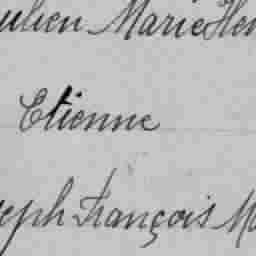 ulien Marie Hen
Etienne
seph François Ma